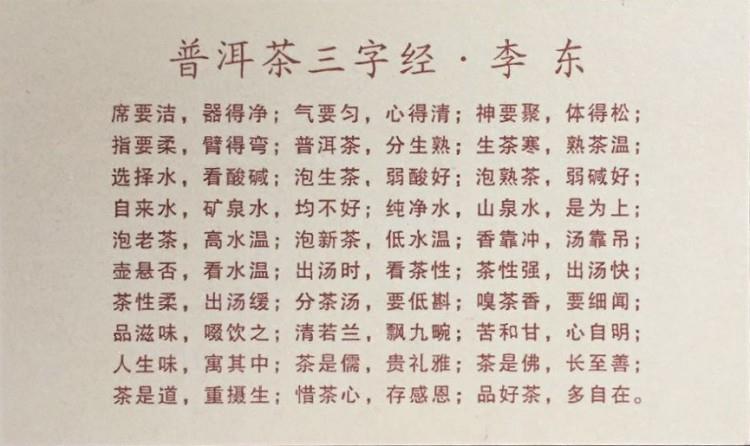 普洱茶三字经·李东
席要洁，器得净；气要匀，心得清；神要聚，体得松；
指要柔，臂得弯；普洱茶，分生熟；生茶寒，熟茶温；
选择水，看酸碱；泡生茶，弱酸好；泡熟茶，弱碱好；
自来水，矿泉水，均不好；纯净水，山泉水，是为上；
泡老茶，高水温；泡新茶，低水温；香靠冲，汤靠吊；
壶悬否，看水温；出汤时，看茶性；茶性强，出汤快；
茶性柔，出汤缓；分茶汤，要低斟；嗅茶香，要细闻；
品滋味，啜饮之；清若兰，飘九畹；苦和甘，心自明；
人生味，寓其中；茶是儒，贵礼雅；茶是佛，长至善；
茶是道，重摄生；惜茶心，存感恩；品好茶，多自在。